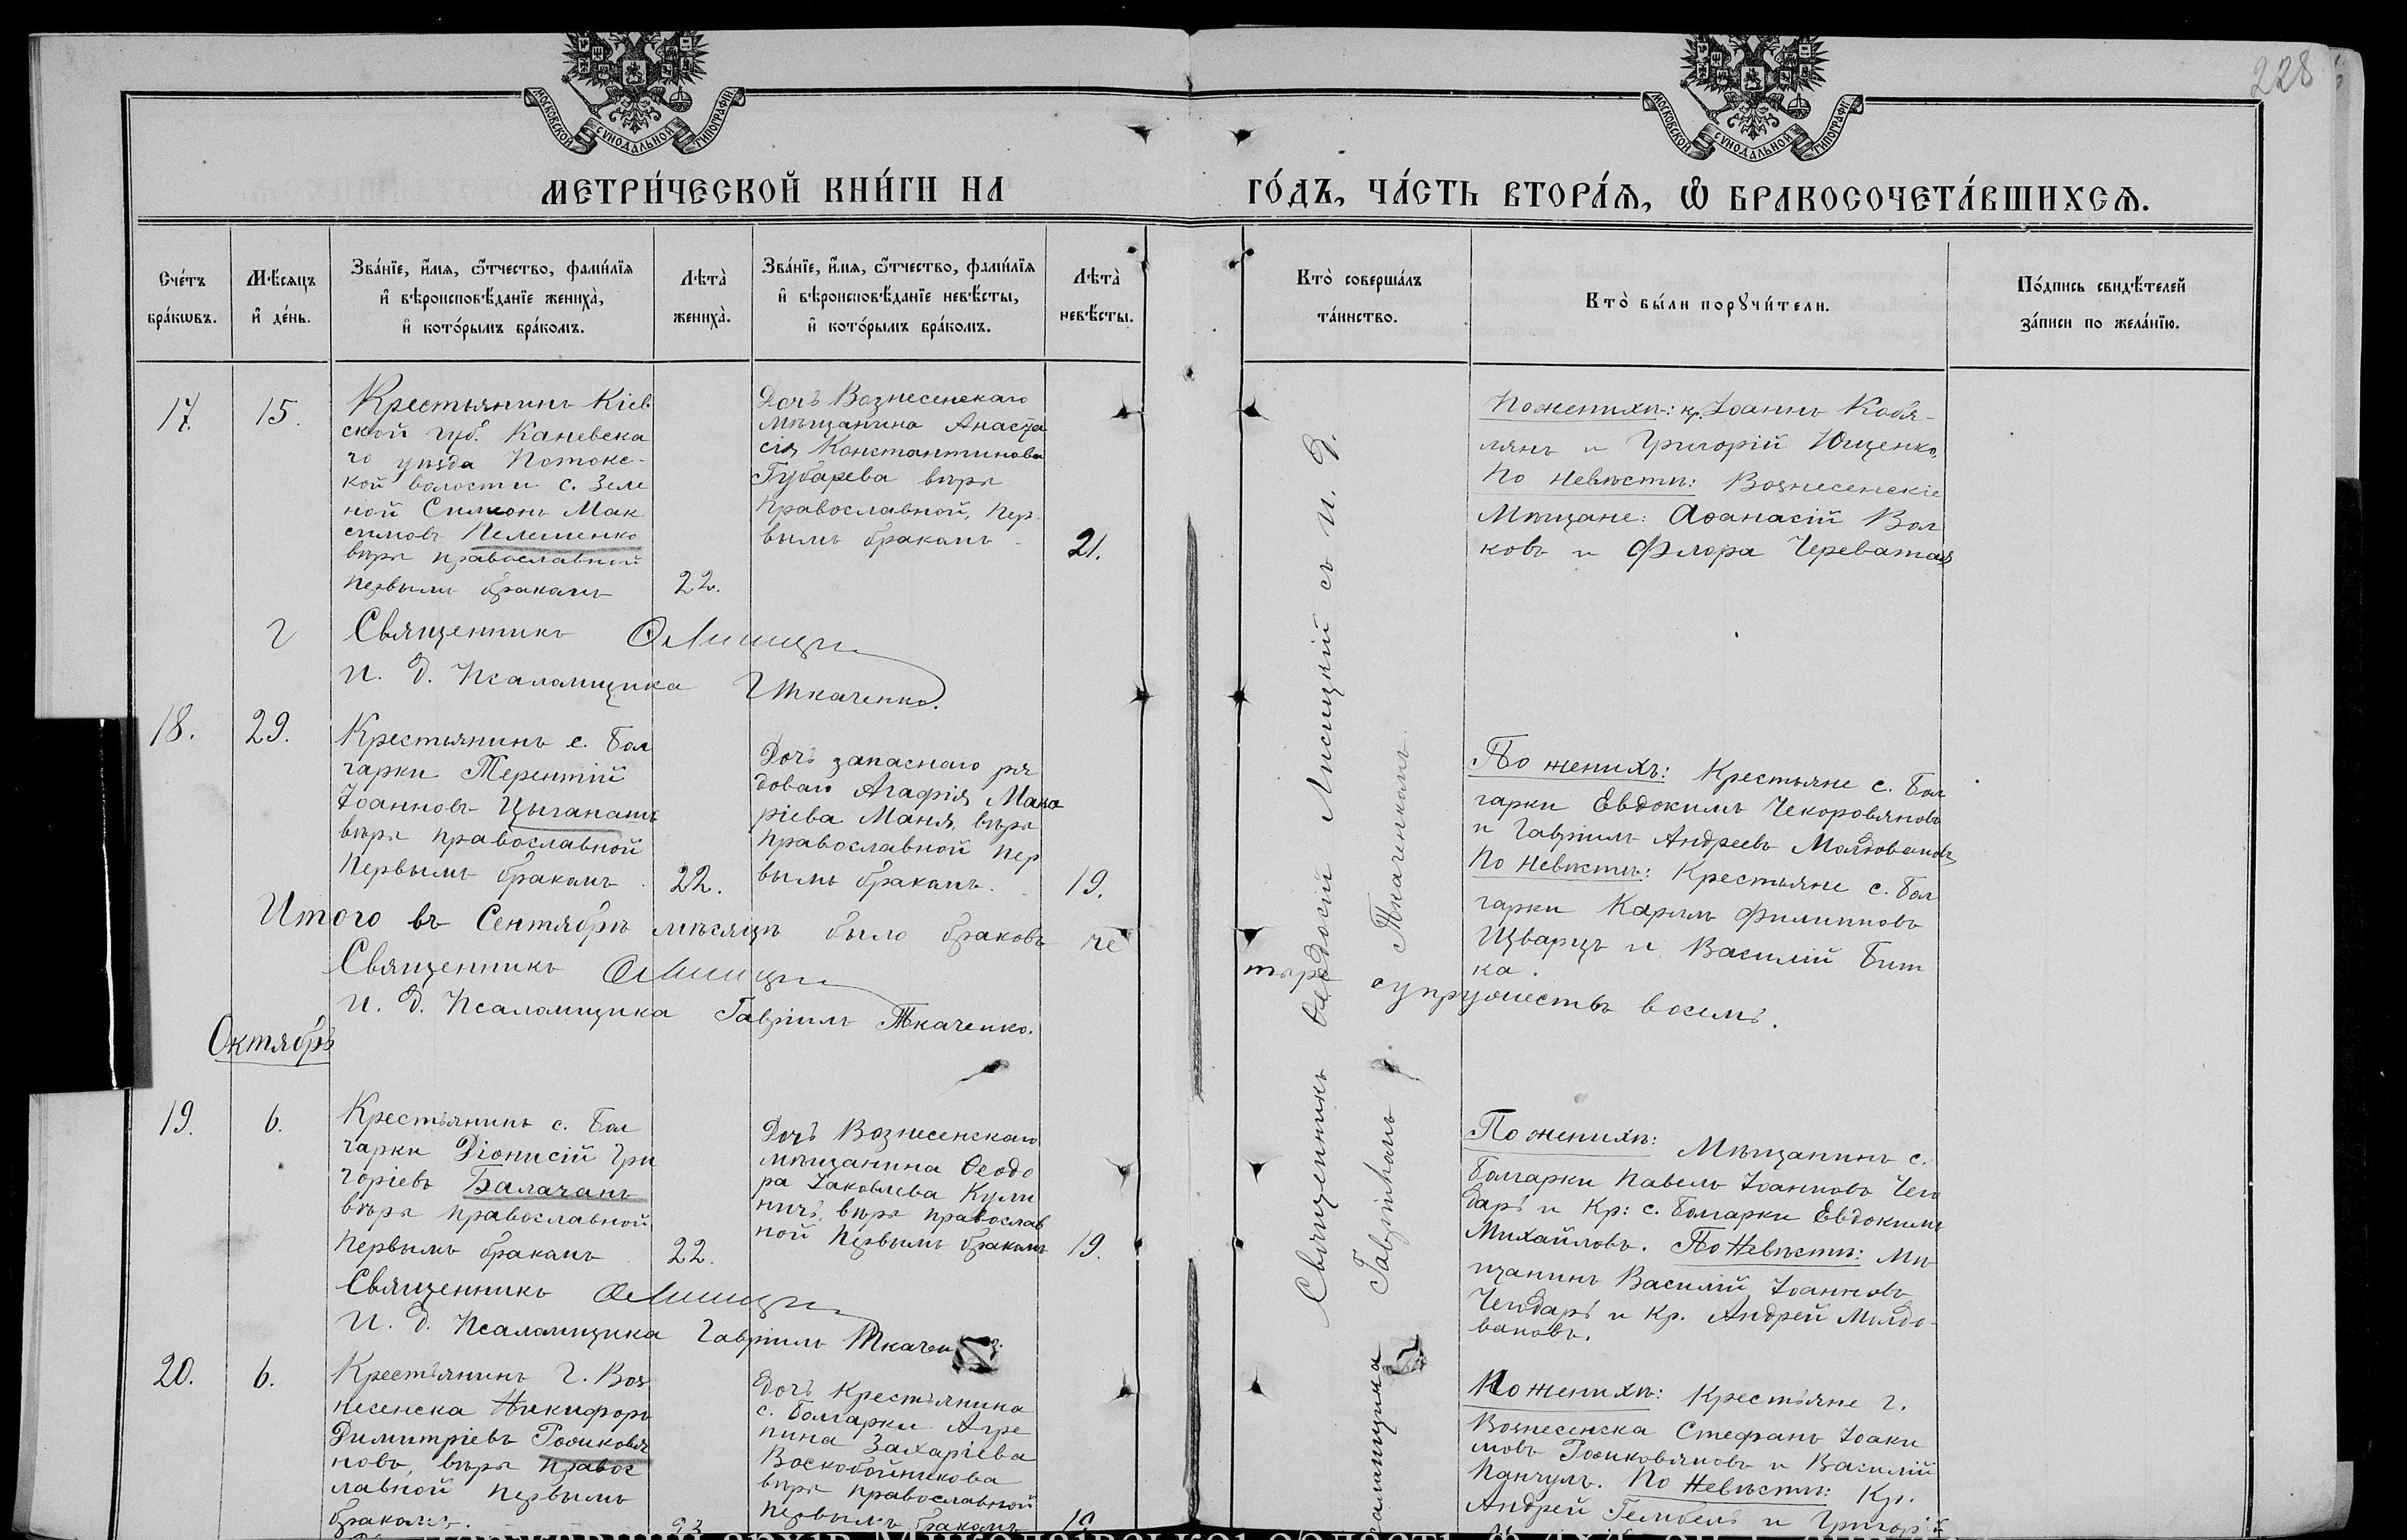 228
МОСКОВСКОЙ СУНОДАЛЬНОЙ ТИПОГРАФІИ
МОСКОВСКОЙ СУНОДАЛЬНОЙ ТИПОГРАФІИ
МЕТРИ́ЧЕСКОЙ КНИ́ГИ НА
ГО́ДЪ, ЧА́СТЬ ВТОРА́Ѧ, Ѡ҆ БРАКОСОЧЕТА́ВШИХСѦ.
Сче́тъ
бра́кѡвъ.
Мѣ́сяцъ
и҆ де́нь.
Зва́нїе, и҆́мѧ, ѻ҆́тчество, фами́лїѧ
и҆ вѣроисповѣ́данїе жениха̀,
и҆ кото́рымъ бра́комъ.
Лѣта̀
жениха̀.
Зва́нїе, и҆́мѧ, ѻ҆́тчество, фами́лїѧ
и҆ вѣроисповѣ́данїе невѣ́сты,
и҆ кото́рымъ бра́комъ.
Лѣта̀
невѣ́сты.
Кто̀ соверша́лъ
та́инство.
Кто̀ бы́ли порꙋчи́тели.
По́дпись свидѣ́телей
за́писи по жела́нїю.
17.
15.
Крестьянинъ Кіев
ской губ. Каневска
го уѣзда Потокс-
кой волости с. Зеле
ной Симеонъ Мак
симовъ Пелешенко
вѣры православной
первымъ бракомъ
22.
Дочь Вознесенскаго
мѣщанина Анаста
сія Константинова
Губарева вѣры
православной, пер-
вымъ бракомъ
21.
По женихѣ: кр. Іоаннъ Кобы-
лянъ и Григорій Ющенко.
По невѣстѣ: Вознесенскіе
Мѣщане: Аѳанасій Вол
ковъ и Флора Череватая
Священникъ
И. д. Псаломщика Г Ткаченко.
18.
29.
Крестьянинъ с. Бол
гарки Терентій
Іоанновъ Цыганашъ
вѣры православной
первымъ бракомъ
22.
Дочь запаснаго ря
доваго Агафія Мака
ріева Маня, вѣры
православной пер
вымъ бракомъ.
19.
По женихѣ: Крестьяне с. Бол
гарки Евдокимъ Чекоровяновъ
и Гавріилъ Андреевъ Молдовановъ
По невѣстѣ: Крестьяне с. Бол
гарки Карлъ Филипповъ
Щварцъ и Василій Бит
ка.
Итого въ Сентябрѣ мѣсяцѣ было браковъ че
тыре супружествъ восемь.
Священникъ
И. д. Псаломщика Гавріилъ Ткаченко.
Октябрь
19.
6.
Крестьянинъ с. Бол
гарки Діонисій Гри
горіевъ Балачанъ
вѣры православной
первымъ бракомъ
22.
Дочь Вознесенскаго
мѣщанина Ѳеодо
ра Іаковлева Кули
ничъ, вѣры православ
ной первымъ бракомъ
19.
По женихѣ: Мѣщанинъ с.
Болгарки Павелъ Іоанновъ Чего
дарь и Кр: с. Болгарки Евдокимъ
Михайловъ. По Невѣстѣ: Мѣ
щанинъ Василій Іоанновъ
Чегодарь и Кр. Андрей Молдо-
вановъ.
Священникъ
И. д. Псаломщика Гавріилъ Ткачен
20.
6.
Крестьянинъ г. Воз
несенска Никифоръ
Димитріевъ
новъ, вѣры правос
лавной первымъ
бракомъ.
Дочь крестьянина
с. Болгарки Агре
пина Захаріева
Воскобойникова
вѣры православной
первымъ бракомъ
19
По женихѣ: Крестьяне г.
Вознесенска Стефанъ Іоаки
мовъ и Василій
Панчулъ. По Невѣстѣ: Кр.
Андрей Гембель и Григорій
Священникъ Ѳеодосій Лисицкій съ и. д.
псаломщика Гавріиломъ Ткаченкомъ.
архів Миколаївської області